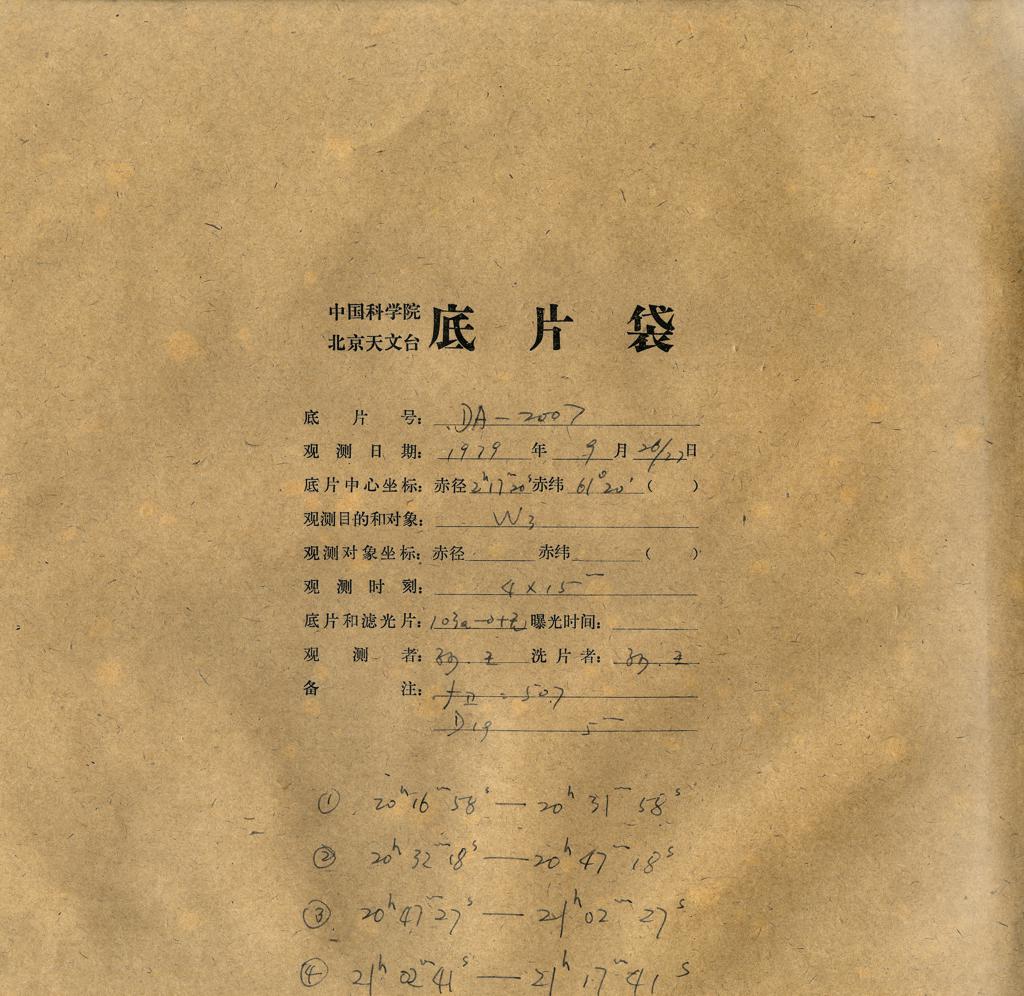 中国科学院
北京天文台 底片袋
底片号: DA-2007
观测日期: 1979 年 9 月 26/27 日
底片中心坐标: 赤径 2ʰ17ᵐ20ˢ 赤纬 61°20′ ( )
观测目的和对象: W3
观测对象坐标: 赤径 赤纬 ( )
观测时刻: 4×15ᵐ
底片和滤光片: 103a-0+ 曝光时间:
观测者: 王 洗片者: 王
备注: = 50.7
D19 5ᵐ
① 20ʰ16ᵐ58ˢ — 20ʰ31ᵐ58ˢ
② 20ʰ32ᵐ18ˢ — 20ʰ47ᵐ18ˢ
③ 20ʰ47ᵐ27ˢ — 21ʰ02ᵐ27ˢ
④ 21ʰ02ᵐ41ˢ — 21ʰ17ᵐ41ˢ